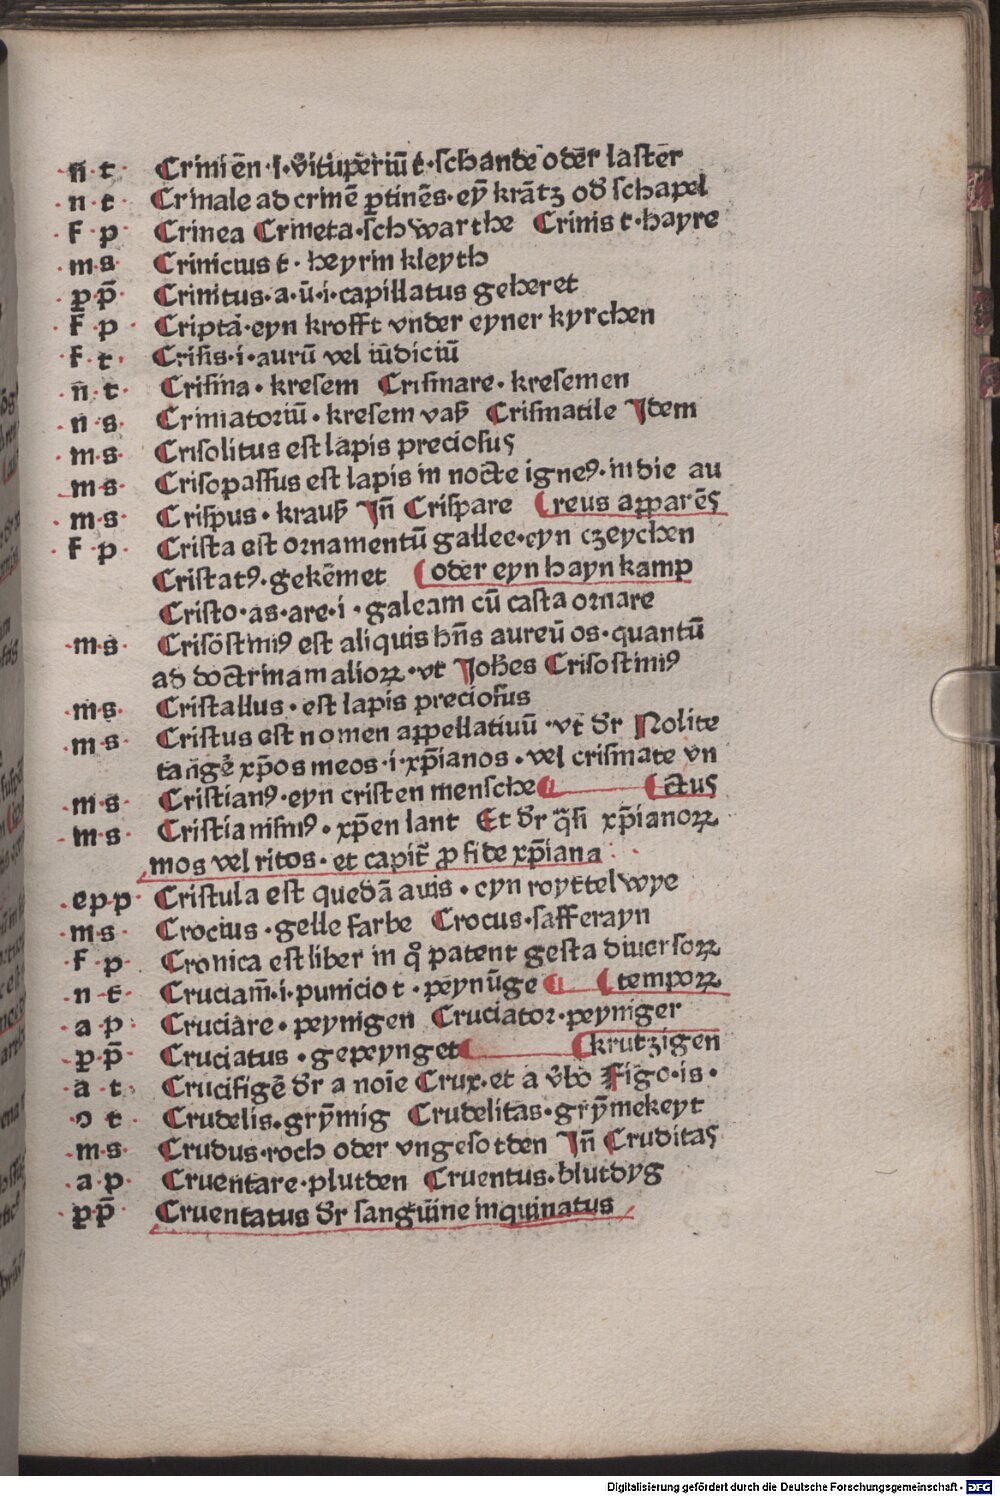 n̄ t Crimē·i·v̓itupēriū t̄·schande oder laster
n·t· Crinale ad crinē ꝑtinēs·ey̅ krātz od̓ schapel
F p Crinea Crineta·schwarthe Crinis t·hayre
m·s Crinicius t·heyrin kleyth
p·p̄ Crinitus·a·ū·i·capillatus geheret
F̄ p Criptā·eyn krofft vnder eyner kyrchen
F t Crisis·i·aurū vel iūdiciū
n̄·t· Crisma·kresem Crismare·kresemen
n·s· Crimatoriū·kresem vaß Crismatile Idem
m·s· Crisolitus est lapis preciosus
m·s· Crisopassus est lapis in nocte igneꝰ·in die au
m·s Crispus·krauß In̄ Crispare (reus apparēs
F p Crista est ornamentū gallee·eyn czeychen
Cristatꝰ·gekēmet (oder eyn hayn kamp
Cristo·as·are·i·galeam cū casta ornare
m·s· Crisostimꝰ est aliquis hn̄s aureū os·quantū
ad doctrinam alioꝝ·vt Johēs Crisostimꝰ
m·s· Cristallus·est lapis preciosus
m·s· Cristus est nomen appellatiuū·vt d̓r Nolite
tangē xp̄os meos·i·xp̄ianos·vel crismate vn
m·s· Cristianꝰ·eyn cristen mensche (ctus
m·s· Cristianismꝰ·xp̄en lant Et d̓r q̄si xp̄ianoꝝ
mos vel ritos·et capit̄ ꝓ fide xp̄iana
e p·p Cristula est quedā auis·eyn royttelwye
m·s Crocius·gelle farbe Crocus·safferayn
F p Cronica est liber in q̊ patent gesta diuersoꝝ
n·t· Cruciam̄·i·punicio t·peynūge (tempoꝝ
a p· Cruciare·peynigen Cruciator·peyniger
p·p̄· Cruciatus·gepeynget (krutzigen
a t· Crucifigē d̓r a noīe Crux·et a v̓bo Figo·is·
ↄ t Crudelis·gry̅mig Crudelitas·gry̅mekeyt
m·s· Crudus·roch oder vngesotden In̄ Cruditas
a p· Cruentare·plutden Cruentus·blutdyg
p·p̄ Cruentatus d̓r sanguine inquinatus
Digitalisierung gefördert durch die Deutsche Forschungsgemeinschaft - DFG